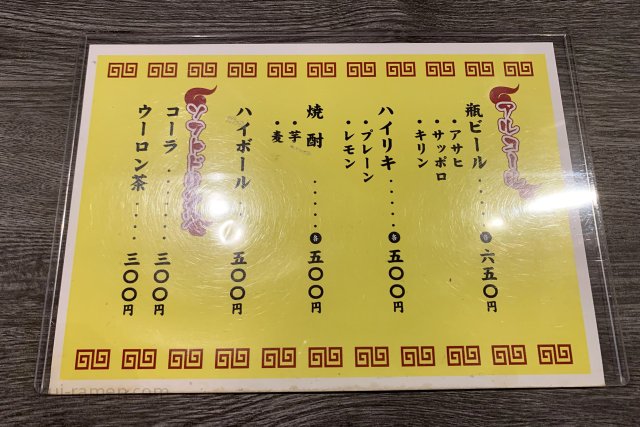 アルコール
瓶ビール……各 六五〇円
・アサヒ
・サッポロ
・キリン
ハイリキ……各 五〇〇円
・プレーン
・レモン
焼酎……各 五〇〇円
・芋
・麦
ハイボール…… 五〇〇円
ソフトドリンク
コーラ…… 三〇〇円
ウーロン茶…… 三〇〇円
ui-ramen.com